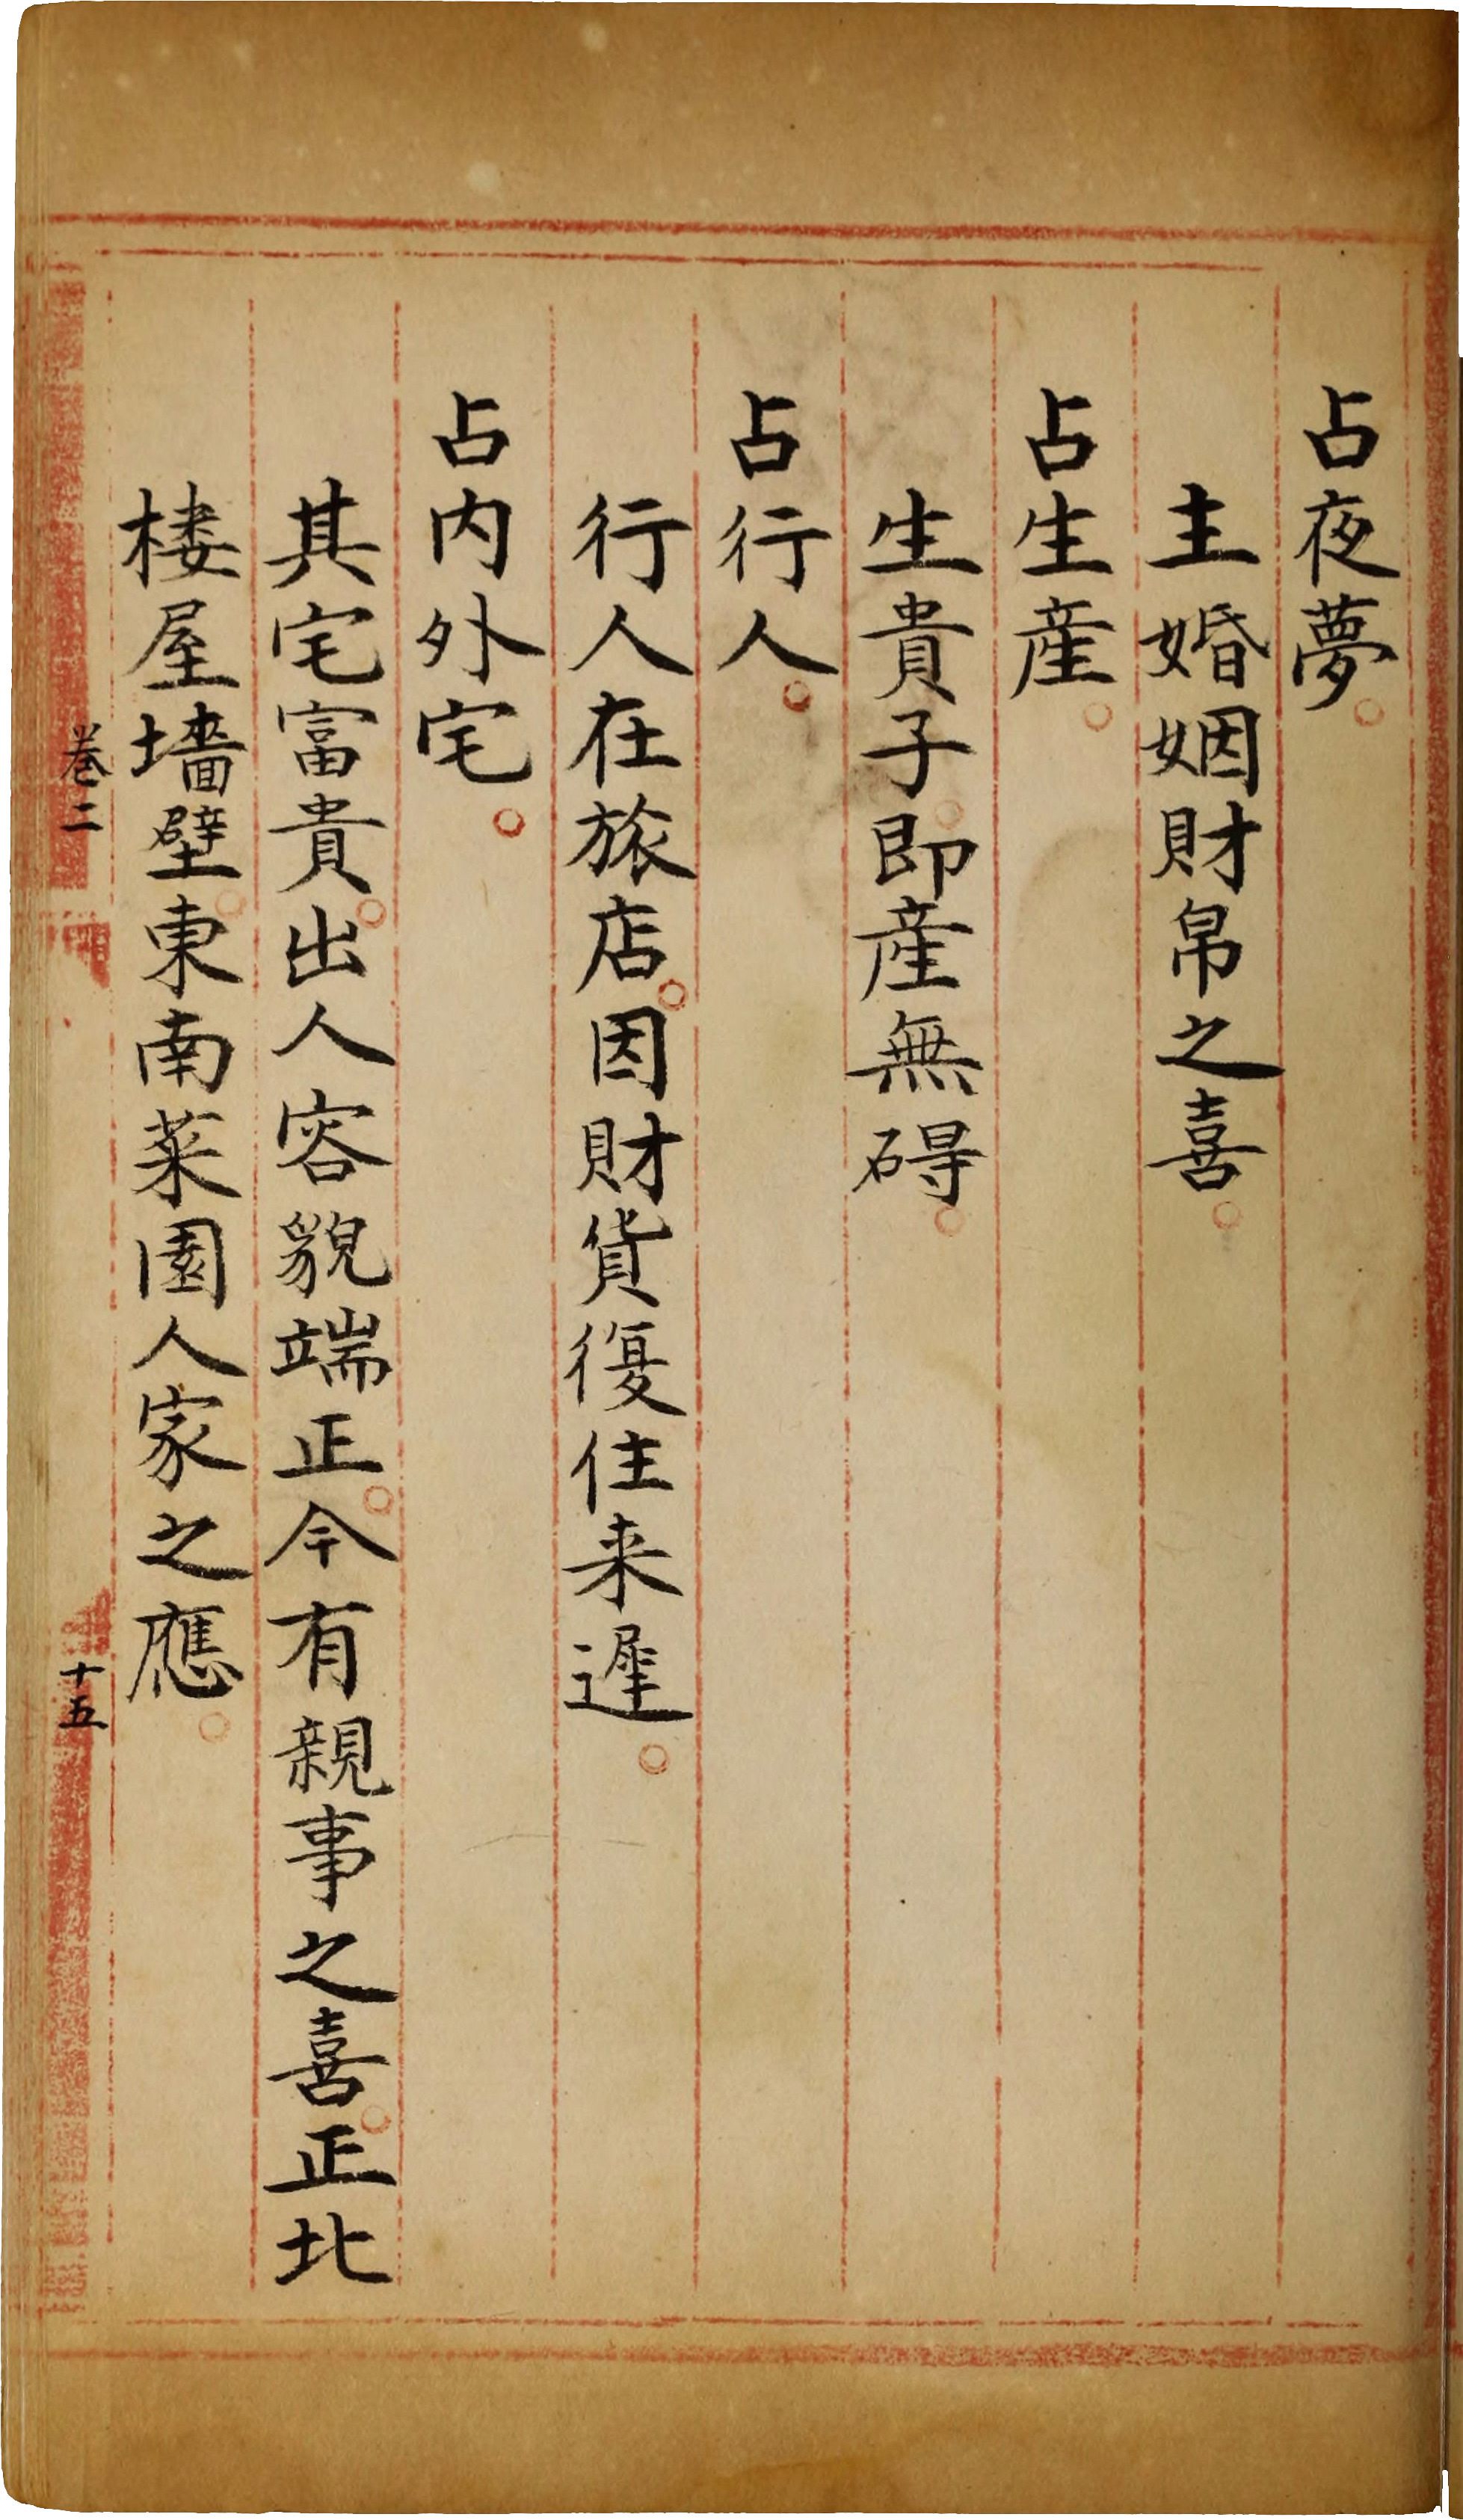 占夜夢
主婚姻財帛之喜
占生產
生貴子即產無碍
占行人
行人在旅店因財貨復住来遲
占内外宅
其宅富貴出人容貌端正今有親事之喜正北
楼屋墻壁東南菜園人家之應
卷二
十五